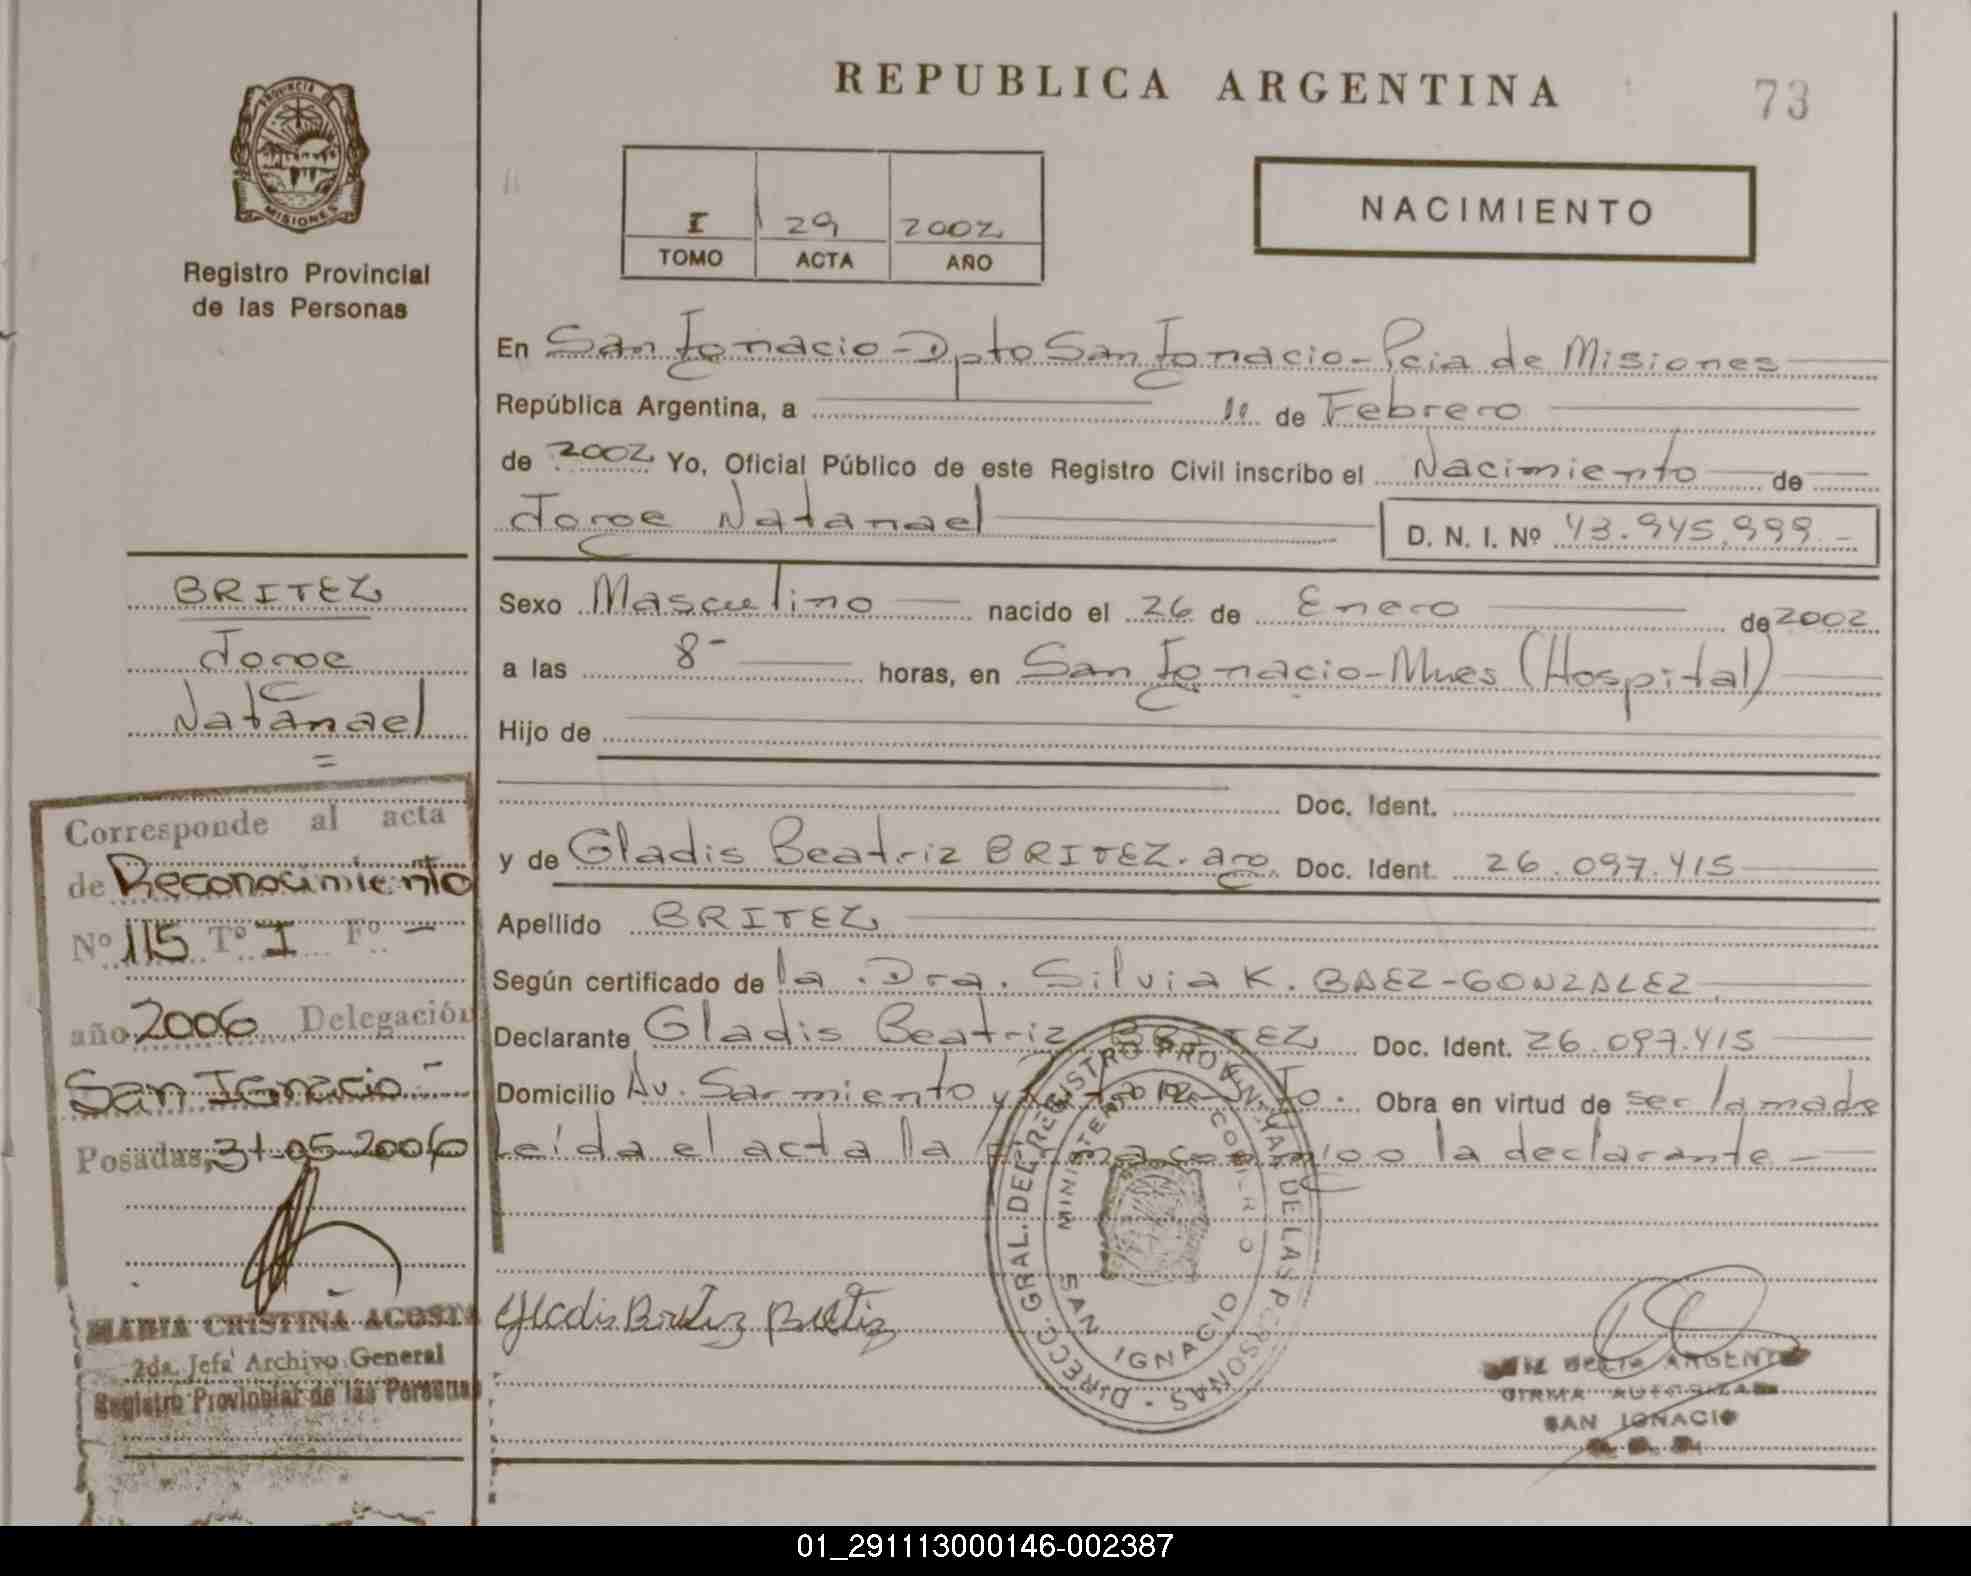 REPUBLICA ARGENTINA
73
PROVINCIA DE
MISIONES
Registro Provincial
de las Personas
I 29 2002
TOMO ACTA AÑO
NACIMIENTO
En San Ignacio - Dpto San Ignacio - Pcia de Misiones
República Argentina, a 11 de Febrero
de 2002 Yo, Oficial Público de este Registro Civil inscribo el Nacimiento de
Jorge Natanael D. N. I. Nº 43.945.999.-
Sexo Masculino nacido el 26 de Enero de 2002
a las 8- horas, en San Ignacio - Mnes (Hospital)
Hijo de
Doc. Ident.
y de Gladis Beatriz BRITEZ. arg. Doc. Ident. 26.097.415
Apellido BRITEZ
Según certificado de la Dra. Silvia K. BAEZ-GONZALEZ
Declarante Gladis Beatriz BRITEZ Doc. Ident. 26.097.415
Domicilio Av. Sarmiento y Obra en virtud de ser la madre
Leída el acta la firma conmigo la declarante -
BRITEZ
Jorge
Natanael
=
Corresponde al acta
de Reconocimiento
Nº 115 Tº I Fº -
año 2006 Delegación
San Ignacio -
Posadas, 31-05-2006
MARIA CRISTINA ACOSTA
2da. Jefa Archivo General
Registro Provincial de las Personas
DIRECC. GRAL. DEL REGISTRO PROVINCIAL DE LAS PERSONAS
MINISTERIO DE GOBIERNO
SAN IGNACIO
Gladis Britez Beatriz
ARGENTO
FIRMA AUTORIZADA
SAN IGNACIO
01_291113000146-002387